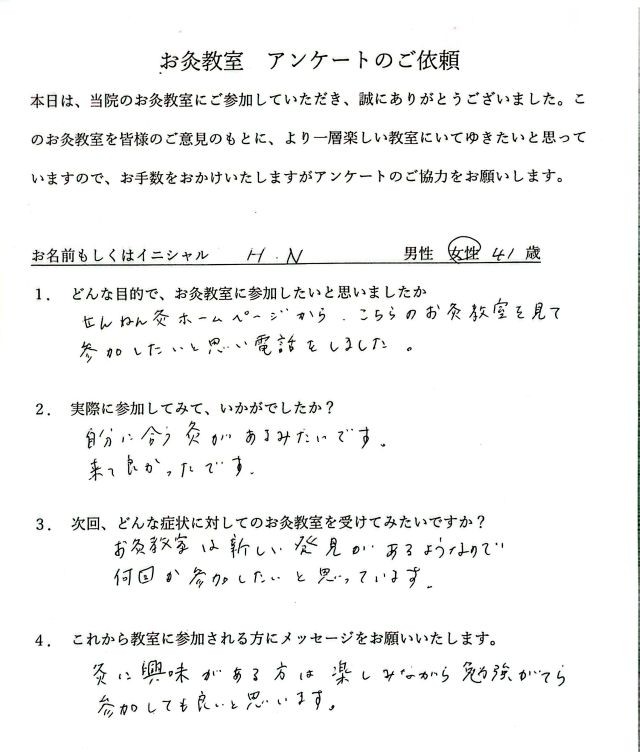 お灸教室　アンケートのご依頼
本日は、当院のお灸教室にご参加していただき、誠にありがとうございました。こ
のお灸教室を皆様のご意見のもとに、より一層楽しい教室にいてゆきたいと思って
いますので、お手数をおかけいたしますがアンケートのご協力をお願いします。
お名前もしくはイニシャル　H.N　男性　女性　41歳
1．どんな目的で、お灸教室に参加したいと思いましたか
せんねん灸ホームページから、こちらのお灸教室を見て
参加したいと思い電話をしました。
2．実際に参加してみて、いかがでしたか？
自分に合う灸があるみたいです。
来て良かったです。
3．次回、どんな症状に対してのお灸教室を受けてみたいですか？
お灸教室は新しい発見があるようなので
何回か参加したいと思っています。
4．これから教室に参加される方にメッセージをお願いいたします。
灸に興味がある方は楽しみながら勉強がてら
参加しても良いと思います。